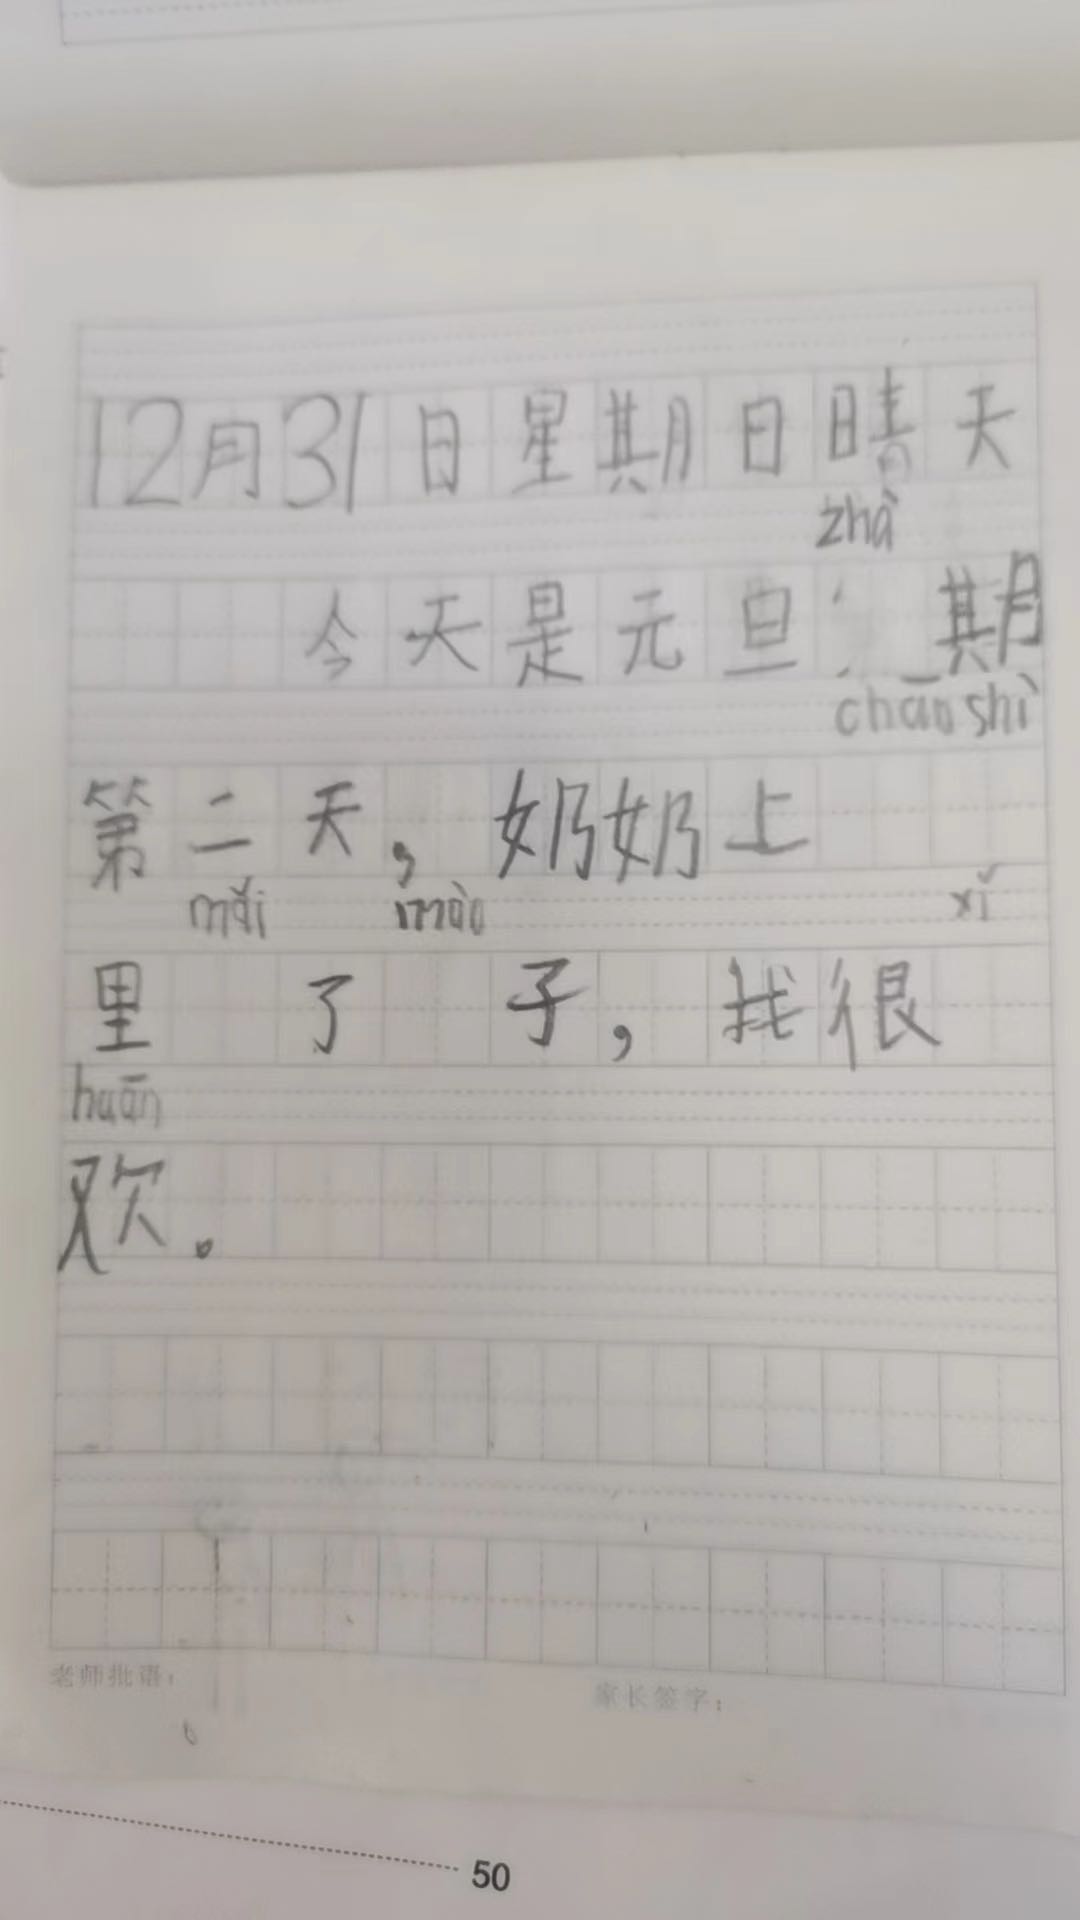 12月31日星期日晴天
zhà
今天是元旦 期
chāo shì
第二天，奶奶上
mǎi mào xǐ
里 了 子，找很
huān
欢。
老师批语：
家长签字：
50